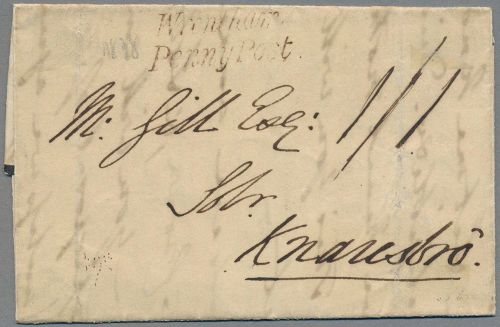 Wrentham
Penny Post.
M. Gill Esq: 1/1
Solr.
Knaresbro.